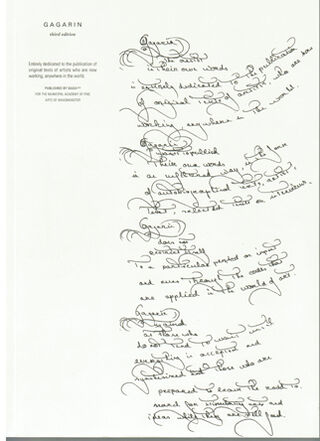 GAGARIN
third edition
Entirely dedicated to the publication of
original texts of artists who are now
working, anywhere in the world.
PUBLISHED BY
FOR THE MUNICIPAL ACADEMY OF FINE
ARTS OF
Gagarin
the artist
in their own words
is entirely dedicated to the publication
of original texts of artists, who are now
working anywhere in the world.
Gagarin
Their own words,
is an unfiltered way, in the form
of autobiographical texts, artists'
texts, selected texts or interviews.
Gagarin
does not
restrict itself
to a particular period or
and even through the codes that
are applied in the world of art.
Gagarin
is aimed
at those who
do not tend to wait until
everything is accepted and
but those who are
prepared to leave the road to
search for and
ideas while they are still good.